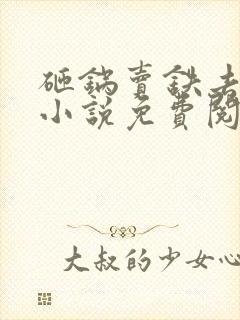 砸鍋賣鉄去
小說免費閱
大叔的少女心